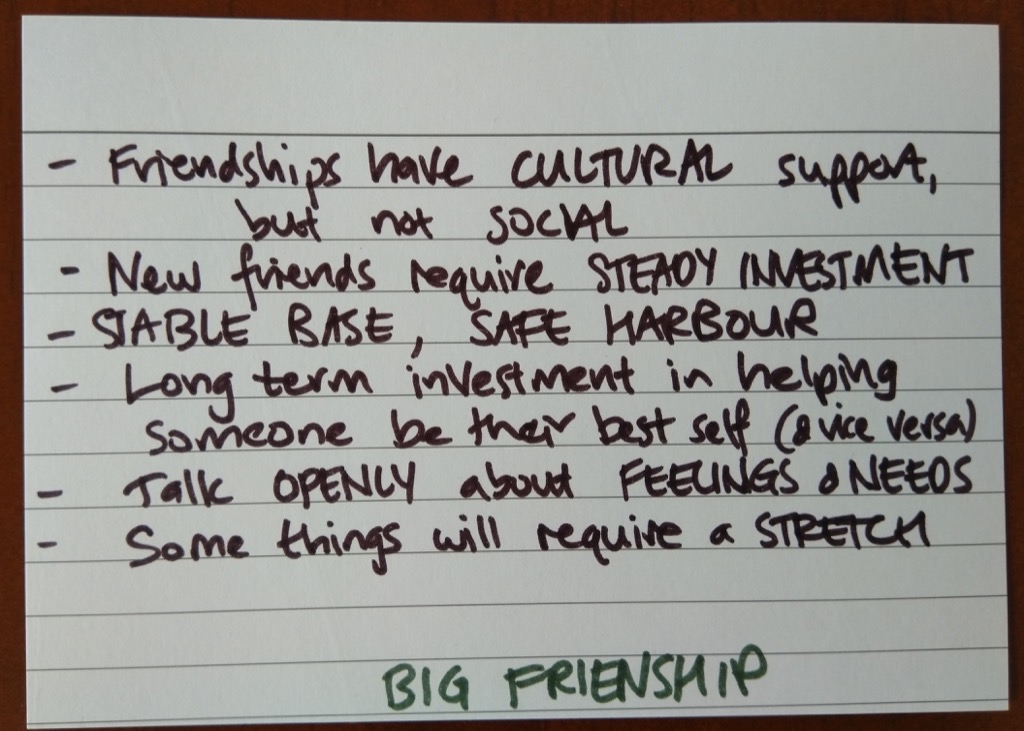 - Friendships have CULTURAL support,
but not SOCIAL
- New friends require STEADY INVESTMENT
- STABLE BASE, SAFE HARBOUR
- Long term investment in helping
someone be their best self (& vice versa)
- Talk OPENLY about FEELINGS & NEEDS
- Some things will require a STRETCH
BIG FRIENSHIP